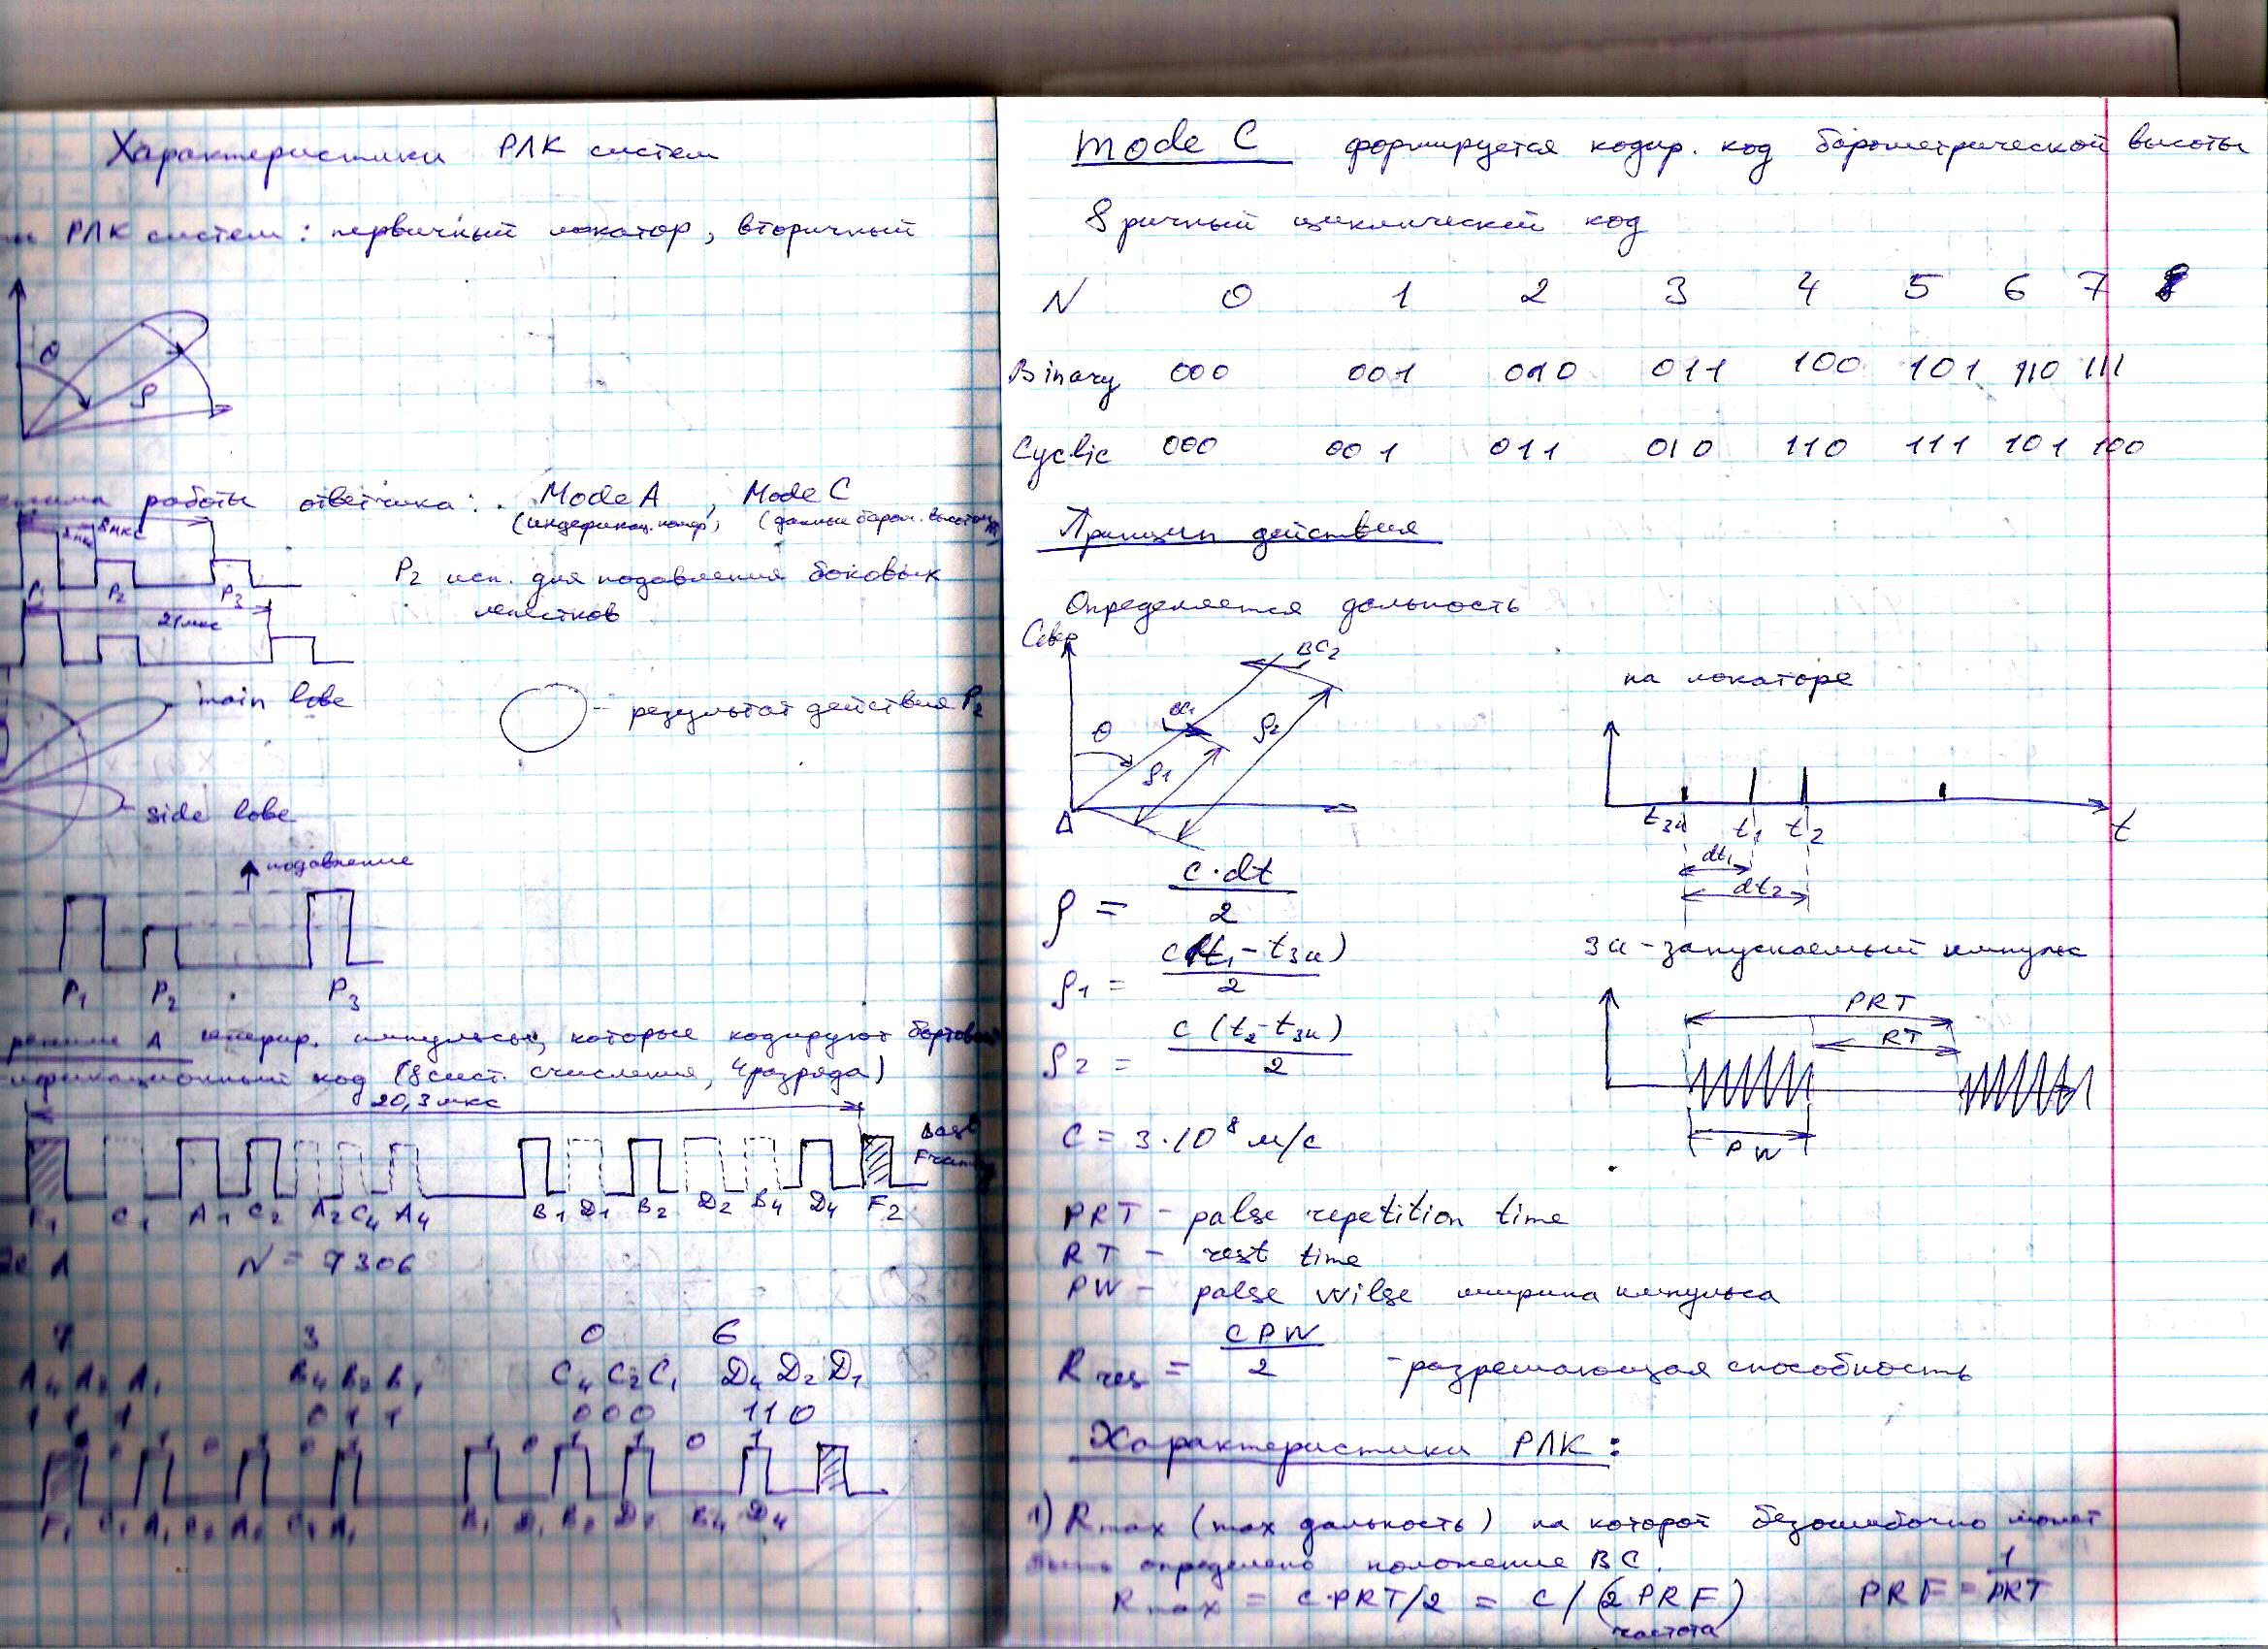 Характеристики РЛК систем
РЛК систем: первичный локатор, вторичный
θ
ρ
работы ответчика: Mode A, Mode C
8 мкс
P1 P2 P3
P2 исп. для подавления боковых
лепестков
21 мкс
main lobe
– результат действия P2
side lobe
подавление
P1 P2 P3
режиме A импульсы, которые кодируют
код (8 сист. счисления, 4 разряда)
20,3 мкс
F1 C1 A1 C2 A2 C4 A4 B1 D1 B2 D2 B4 D4 F2
A N = 7306
7 3 0 6
A4 A2 A1 B4 B2 B1 C4 C2 C1 D4 D2 D1
1 1 1 0 1 1 0 0 0 1 1 0
0 1 0 1 0 1 1 0 1 1 0 1
mode C формируется кодир. код барометрической высоты
8 ричный циклический код
N 0 1 2 3 4 5 6 7
Binary 000 001 010 011 100 101 110 111
Cyclic 000 001 011 010 110 111 101 100
Принцип действия
Определяется дальность
Север
ВС2
θ
ρ1
ρ2
на локаторе
tзи t1 t2 t
dt1
dt2
ρ = c·dt / 2
ρ1 = c(t1 - tзи) / 2
ρ2 = c(t2 - tзи) / 2
зи - запускаемый импульс
PRT
RT
PW
C = 3·10⁸ м/с
PRT - palse repetition time
RT - rest time
PW - palse wilse ширина импульса
R res = c PW / 2 - разрешающая способность
Характеристики РЛК:
1) Rmax (max дальность) на которой безошибочно может
быть определено положение ВС.
Rmax = c·PRT/2 = c/(2 PRF) PRF = 1/PRT
частота